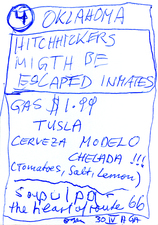 4 OKLAHOMA
HITCHHICKERS
MIGTH BE
ESCAPED INMATES
GAS $1.99
TUSLA
CERVEZA MODELO
CHELADA !!!
(Tomatoes, Salt, Lemon)
Sapulpa -
the heart of route 66
30 IV